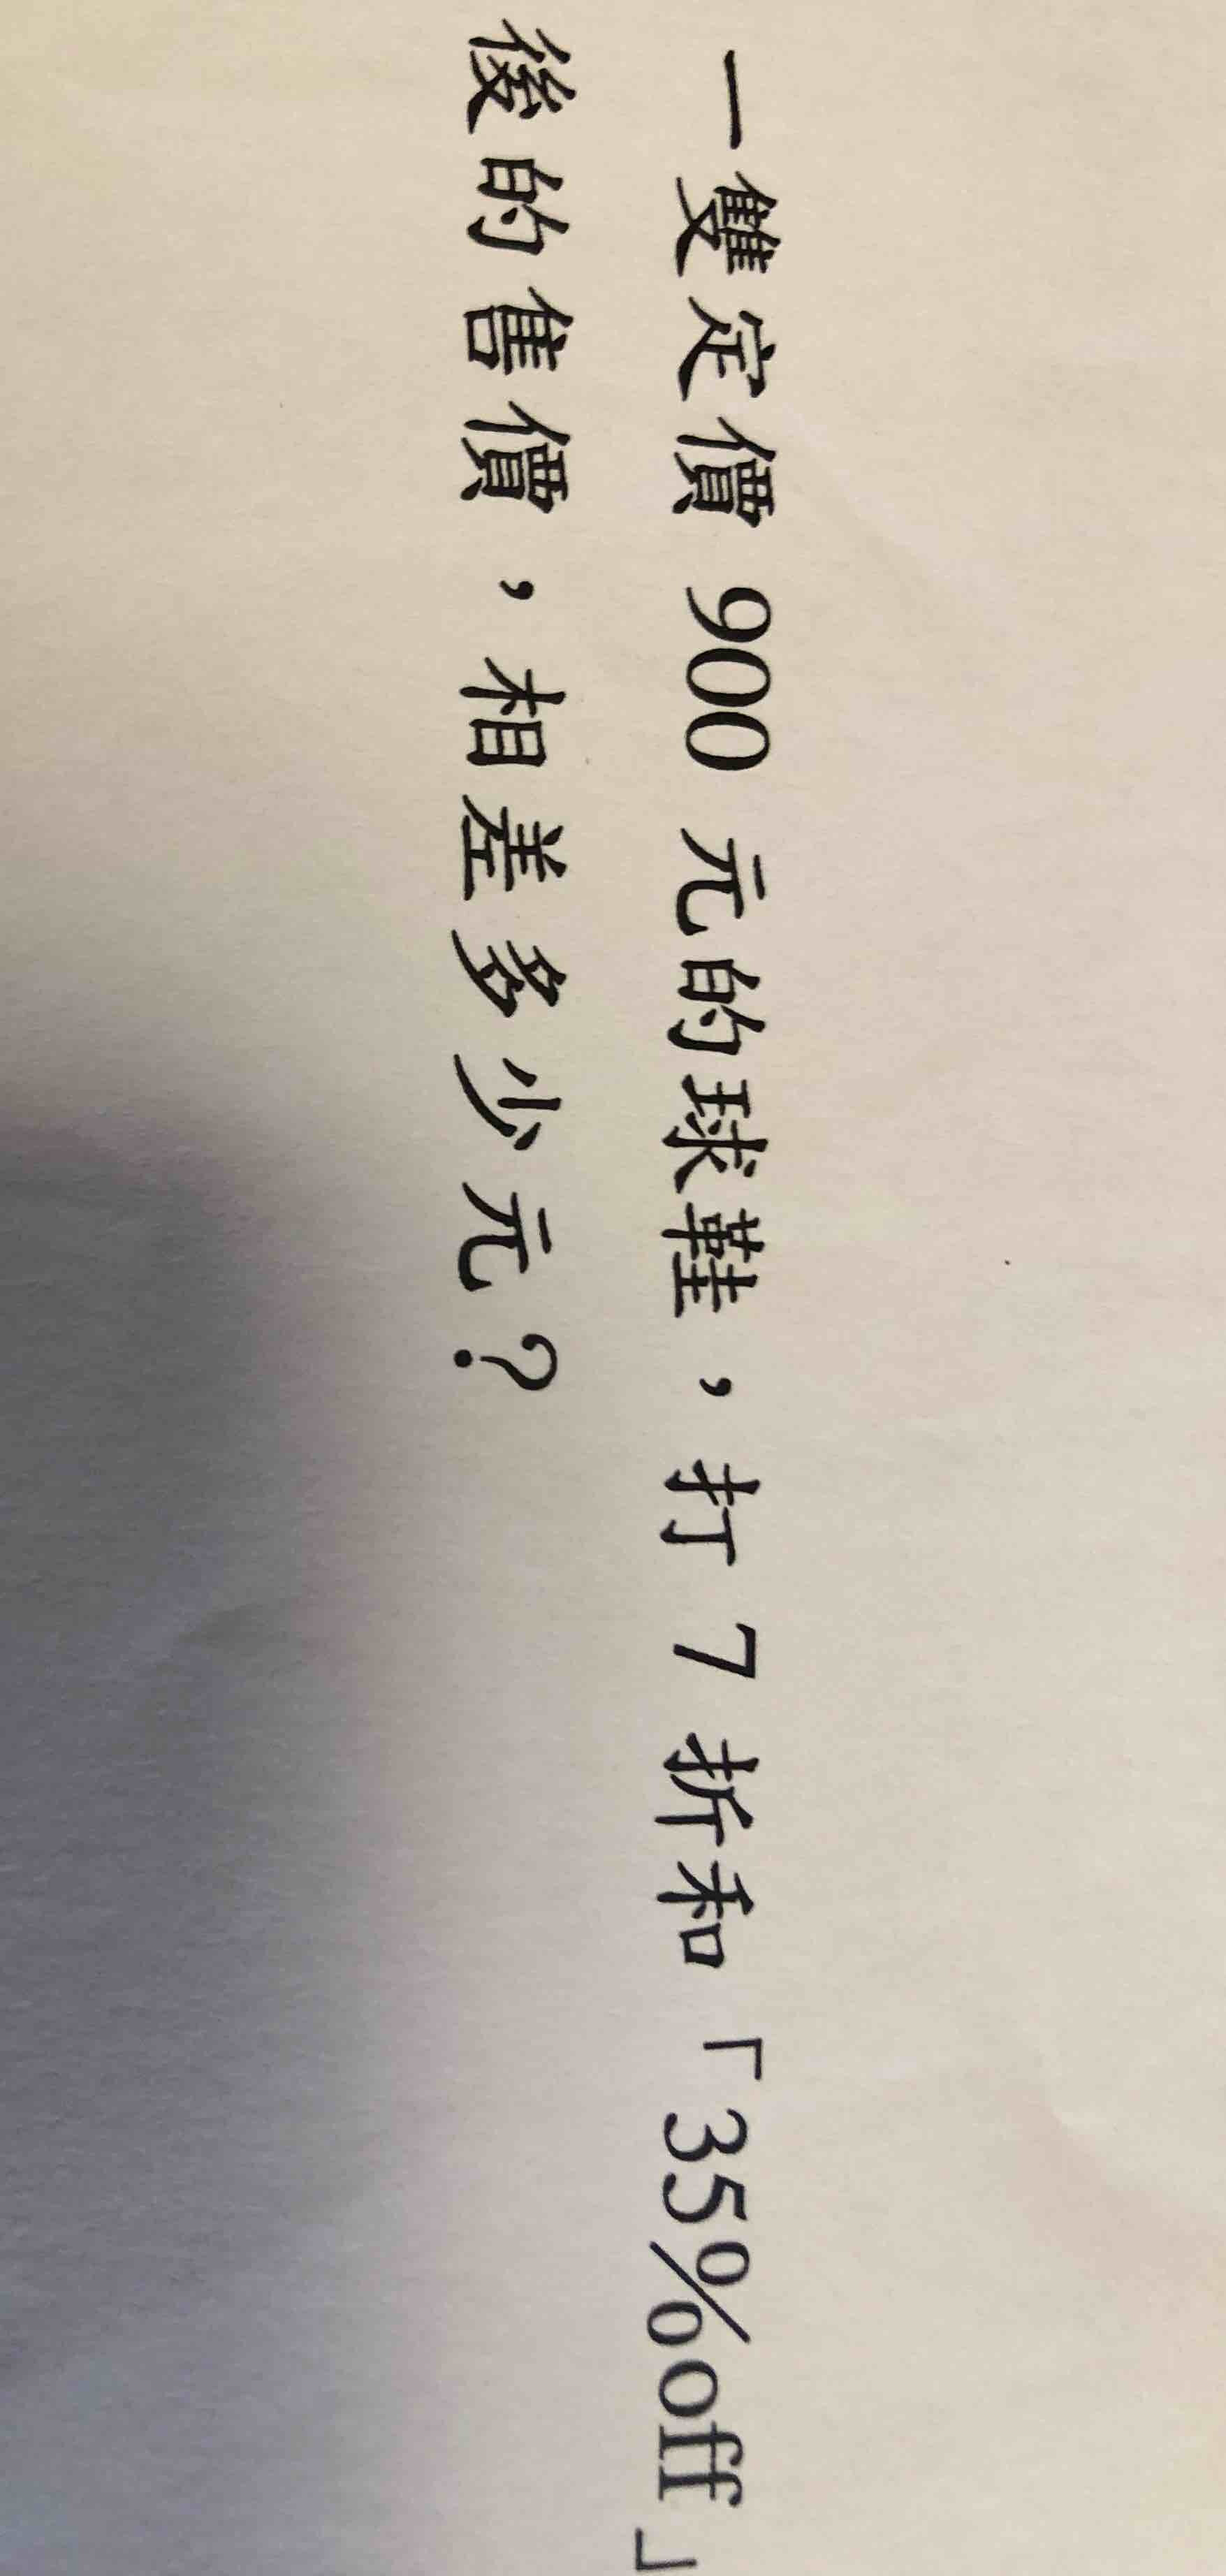 一雙定價 900 元的球鞋，打 7 折和「35%off」
後的售價，相差多少元？